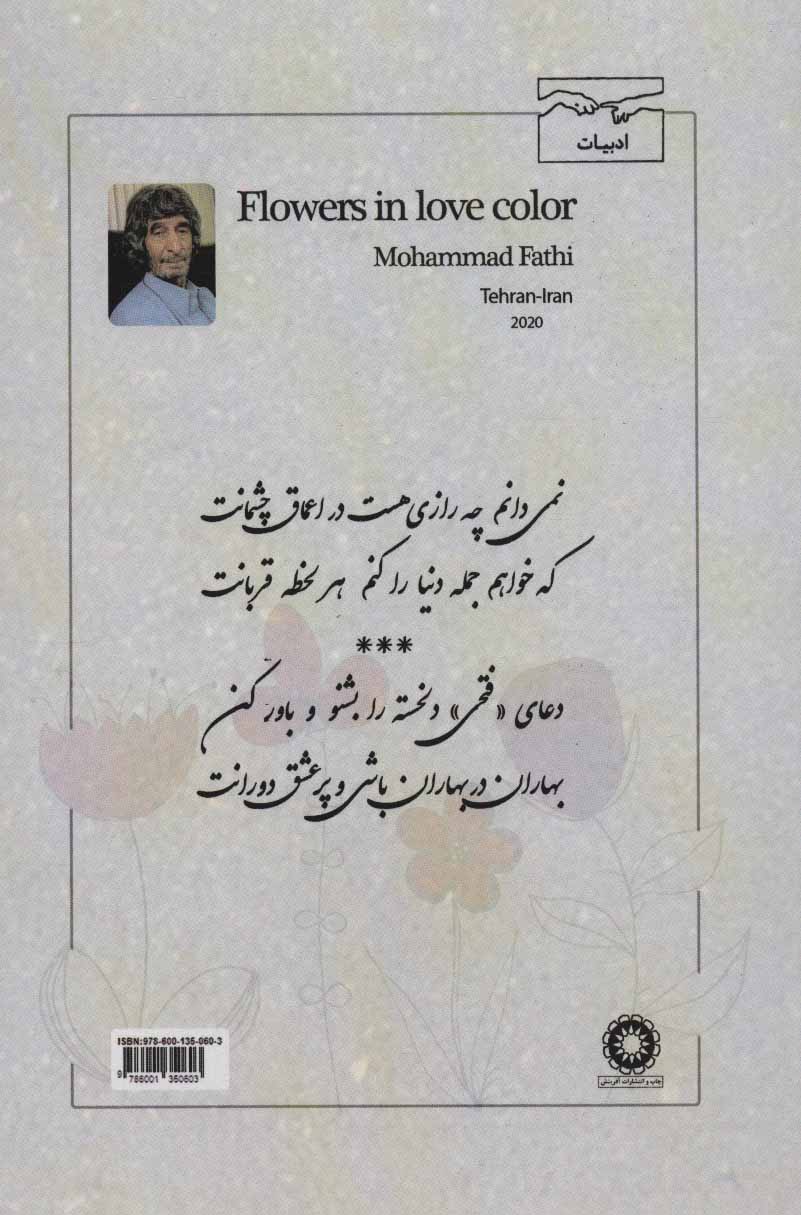 ادبیات
Flowers in love color
Mohammad Fathi
Tehran-Iran
2020
نمی دانم چه رازی هست در اعماق چشمانت
که خواهم جمله دنیا را کنم هر لحظه قربانت
***
دعای «فتحی» دلخسته را بشنو و باور کن
بهاران در بهاران باشی و پر عشق دورانت
ISBN:978-600-135-060-3
9 786001 350603
چاپ و انتشارات آفرینش